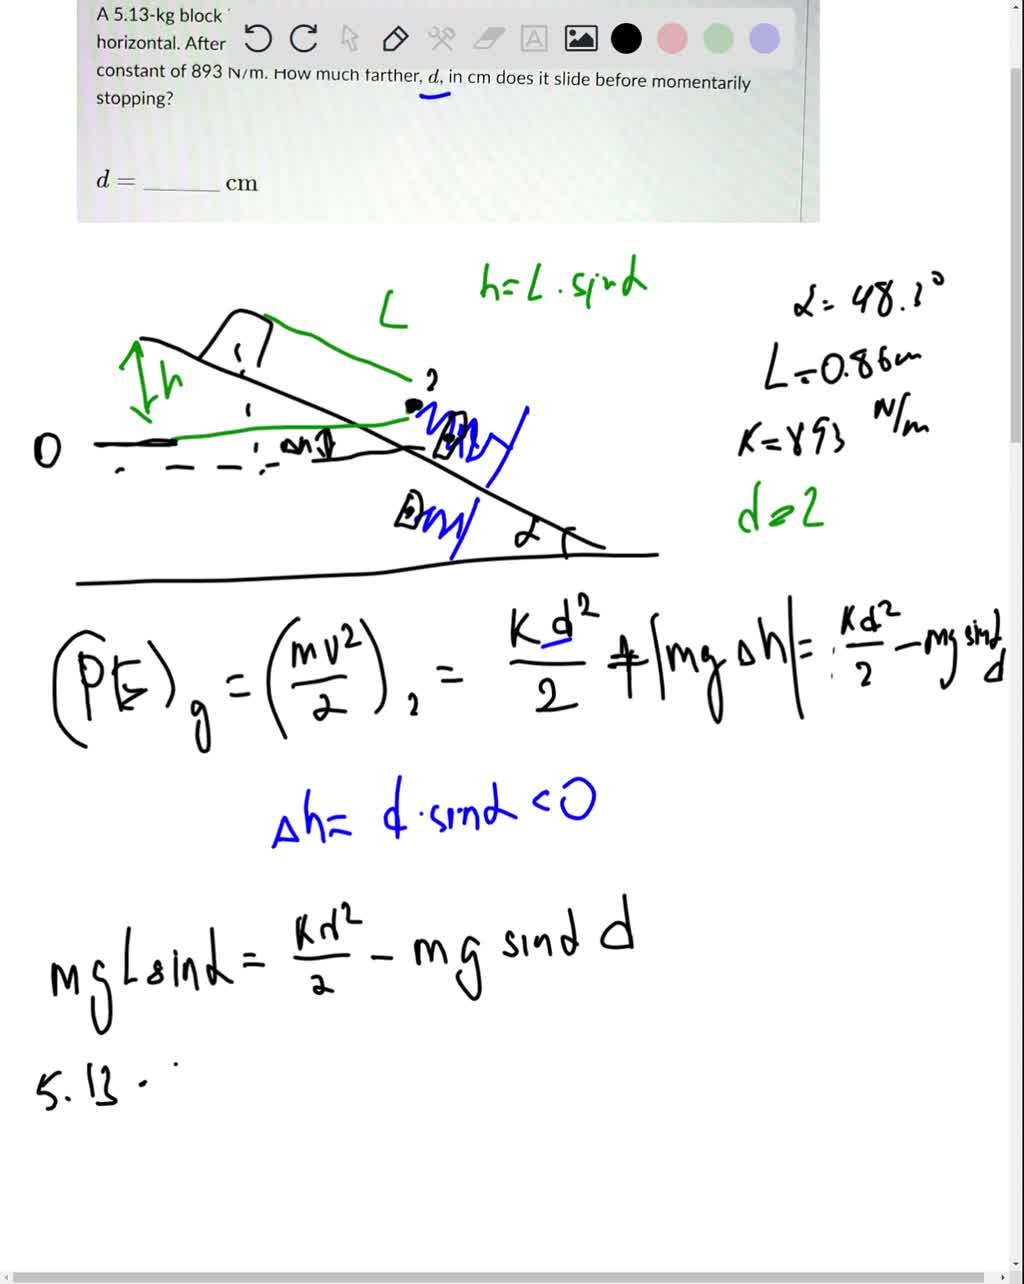 A 5.13-kg block
horizontal. After
constant of 893 N/m. How much farther, d, in cm does it slide before momentarily
stopping?
d = ______ cm
h = L · sinα
L
α = 48.
L = 0.86m
K = 893 N/m
h
2
0
Δh
d = ?
α
(PE)g = (mv²/2)₂ = Kd²/2 + |mgΔh| = Kd²/2 - mg sinα d
Δh = d · sinα < 0
mgL sinα = Kd²/2 - mg sinα d
5.13 ·